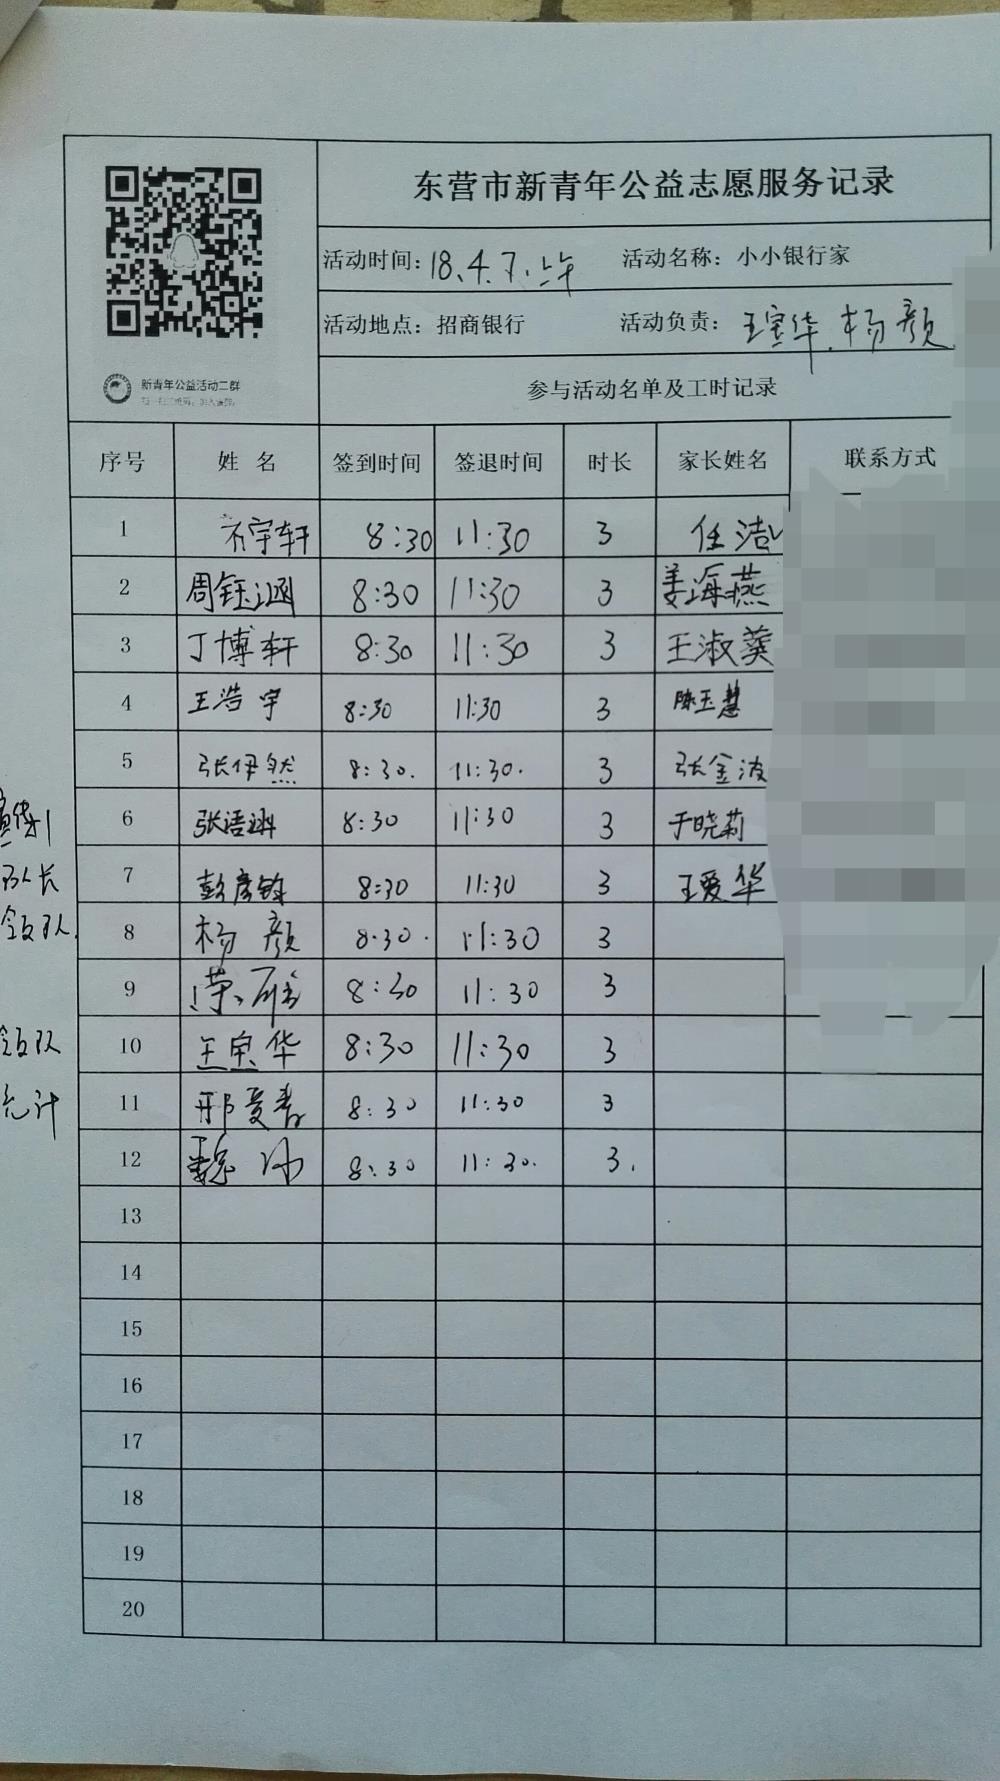 东营市新青年公益志愿服务记录
活动时间：18.4.7.上午 活动名称：小小银行家
活动地点：招商银行 活动负责：王宝华.杨颜
新青年公益活动二群
扫一扫二维码，加入该群。
参与活动名单及工时记录
序号 姓名 签到时间 签退时间 时长 家长姓名 联系方式
1 宇轩 8:30 11:30 3 任洁
2 周钰涵 8:30 11:30 3 姜海燕
3 丁博轩 8:30 11:30 3 王淑蕒
4 王浩宇 8:30 11:30 3 陈玉慧
5 张伊然 8:30. 11:30. 3 张金波
6 张语琳 8:30 11:30 3 于晓莉
7 彭彦钧 8:30 11:30 3 王爱华
队长
领队.
8 杨颜 8:30. 11:30 3
9 8:30 11:30 3
领队
10 王宝华 8:30 11:30 3
统计
11 邢爱青 8:30 11:30 3
12 魏 8:30 11:30. 3.
13
14
15
16
17
18
19
20